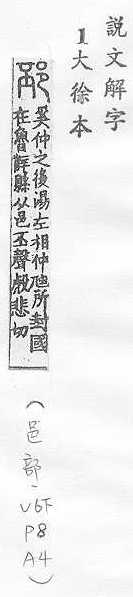 説文解字
1大徐本
邳
奚仲之後湯左相仲虺所封國
在魯辥縣从邑丕聲敷悲切
(邑部、V6下
P8
A4)